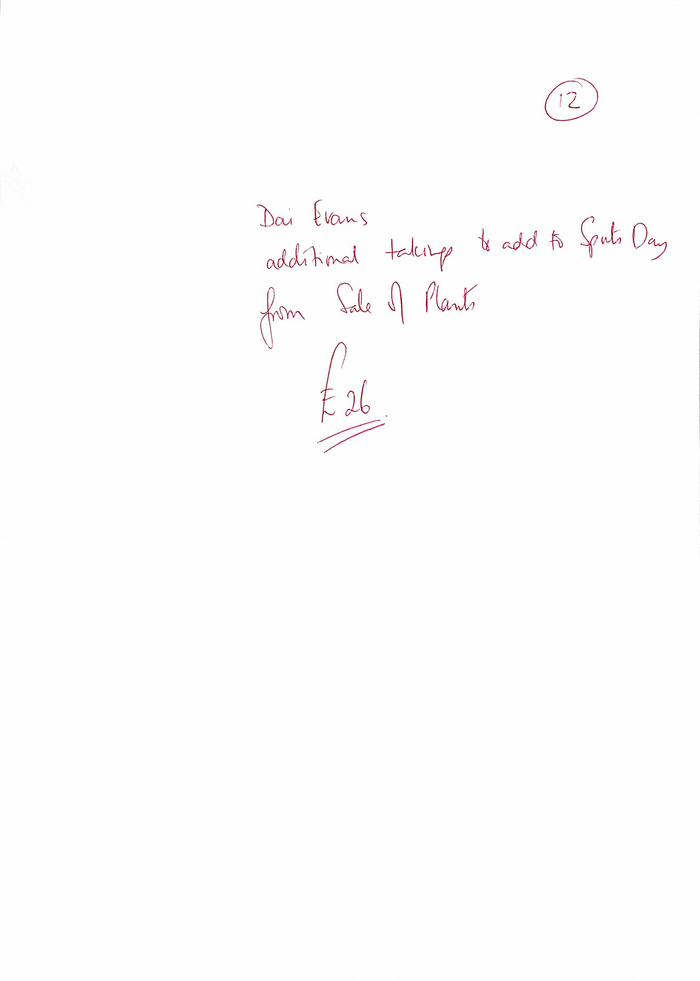 12
Dai Evans
additional takings to add to Sports Day
from Sale of Plants
£26